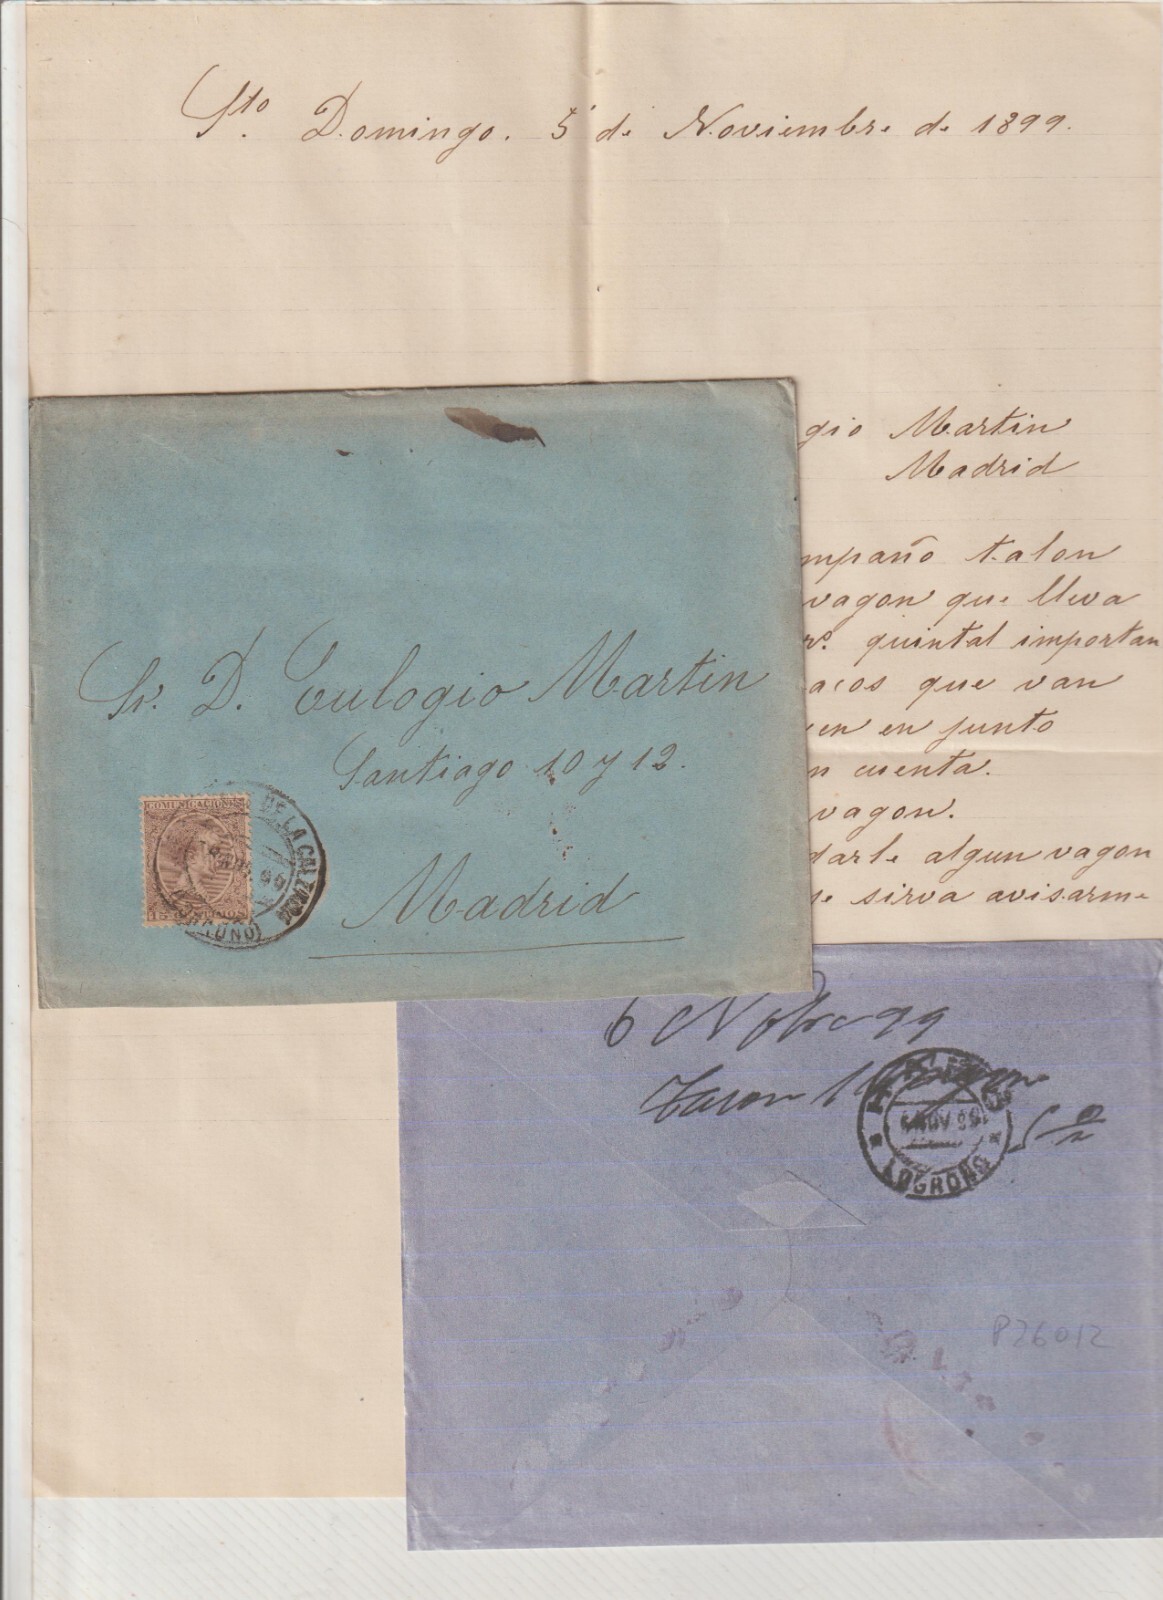 Sto. Domingo. 5 de Noviembre de 1899.
gio Martin
Madrid
mpaño talon
vagon que lleva
ro. quintal importan
acos que van
en en junto
n cuenta.
vagon.
darle algun vagon
se sirva avisarme
Sr. D. Eulogio Martin
Santiago 10 y 12.
Madrid
COMUNICACIONES
15 CENTIMOS
DE LA CALZADA
6 Nbre 99
HARO
NOV 99
LOGROÑO
P26012